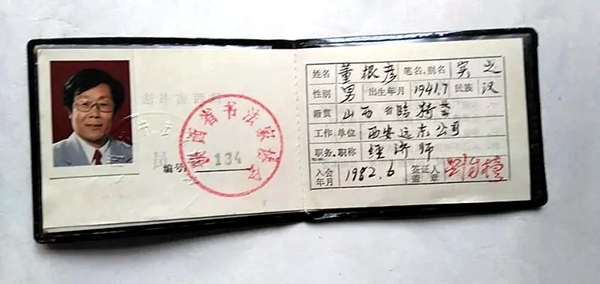 陕西省书法家协会
员
编号 134
姓名 董根彦 笔名.别名 寅之
性别 男 出生年月 1941.7 民族 汉
籍贯 山西省临猗县
工作单位 西安远东公司
职务.职称 经济师
入会年月 1982.6 签证人盖章